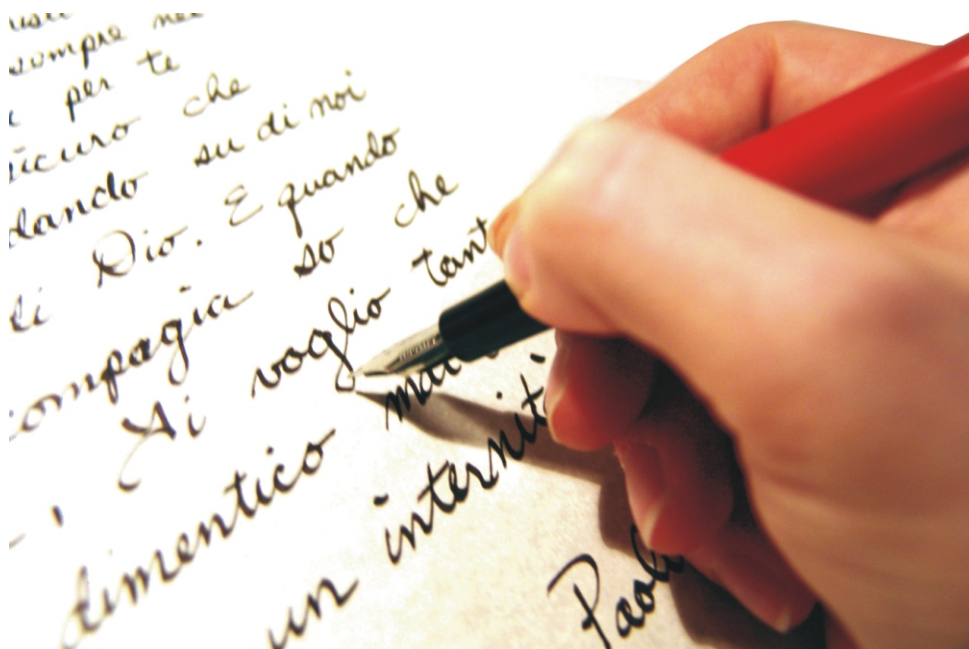 sempre nei
per te
sicuro che
dando su di noi
di Dio. E quando
compagia so che
Ti voglio tant
dimentico mai
un internit
Paol